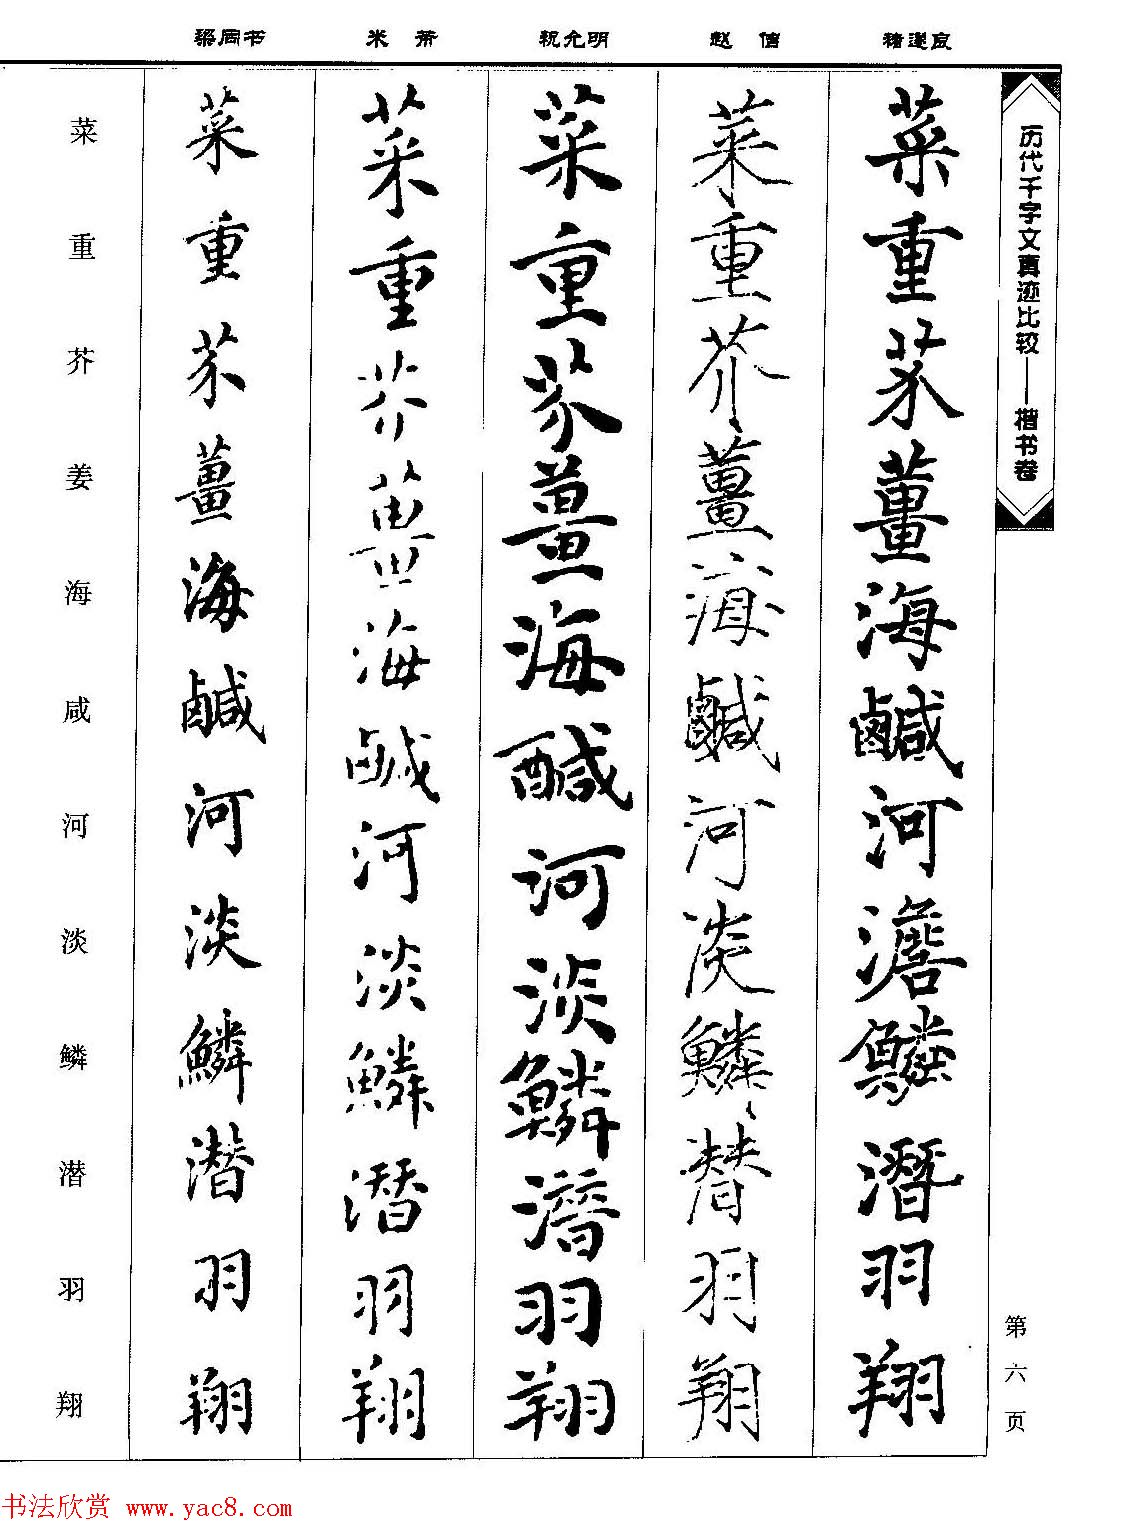 梁同书 米 芾 祝允明 赵 佶 褚遂良
历代千字文真迹比较——楷书卷
第六页
菜重芥薑海鹹河澹鱗潛羽翔
菜重芥薑海鹹河淡鱗潜羽翔
菜重芥薑海醎河淡鱗潛羽翔
菜重芥薑海鹹河淡鱗潛羽翔
菜重芥薑海鹹河淡鱗潜羽翔
菜重芥姜海咸河淡鳞潜羽翔
书法欣赏 www.yac8.com